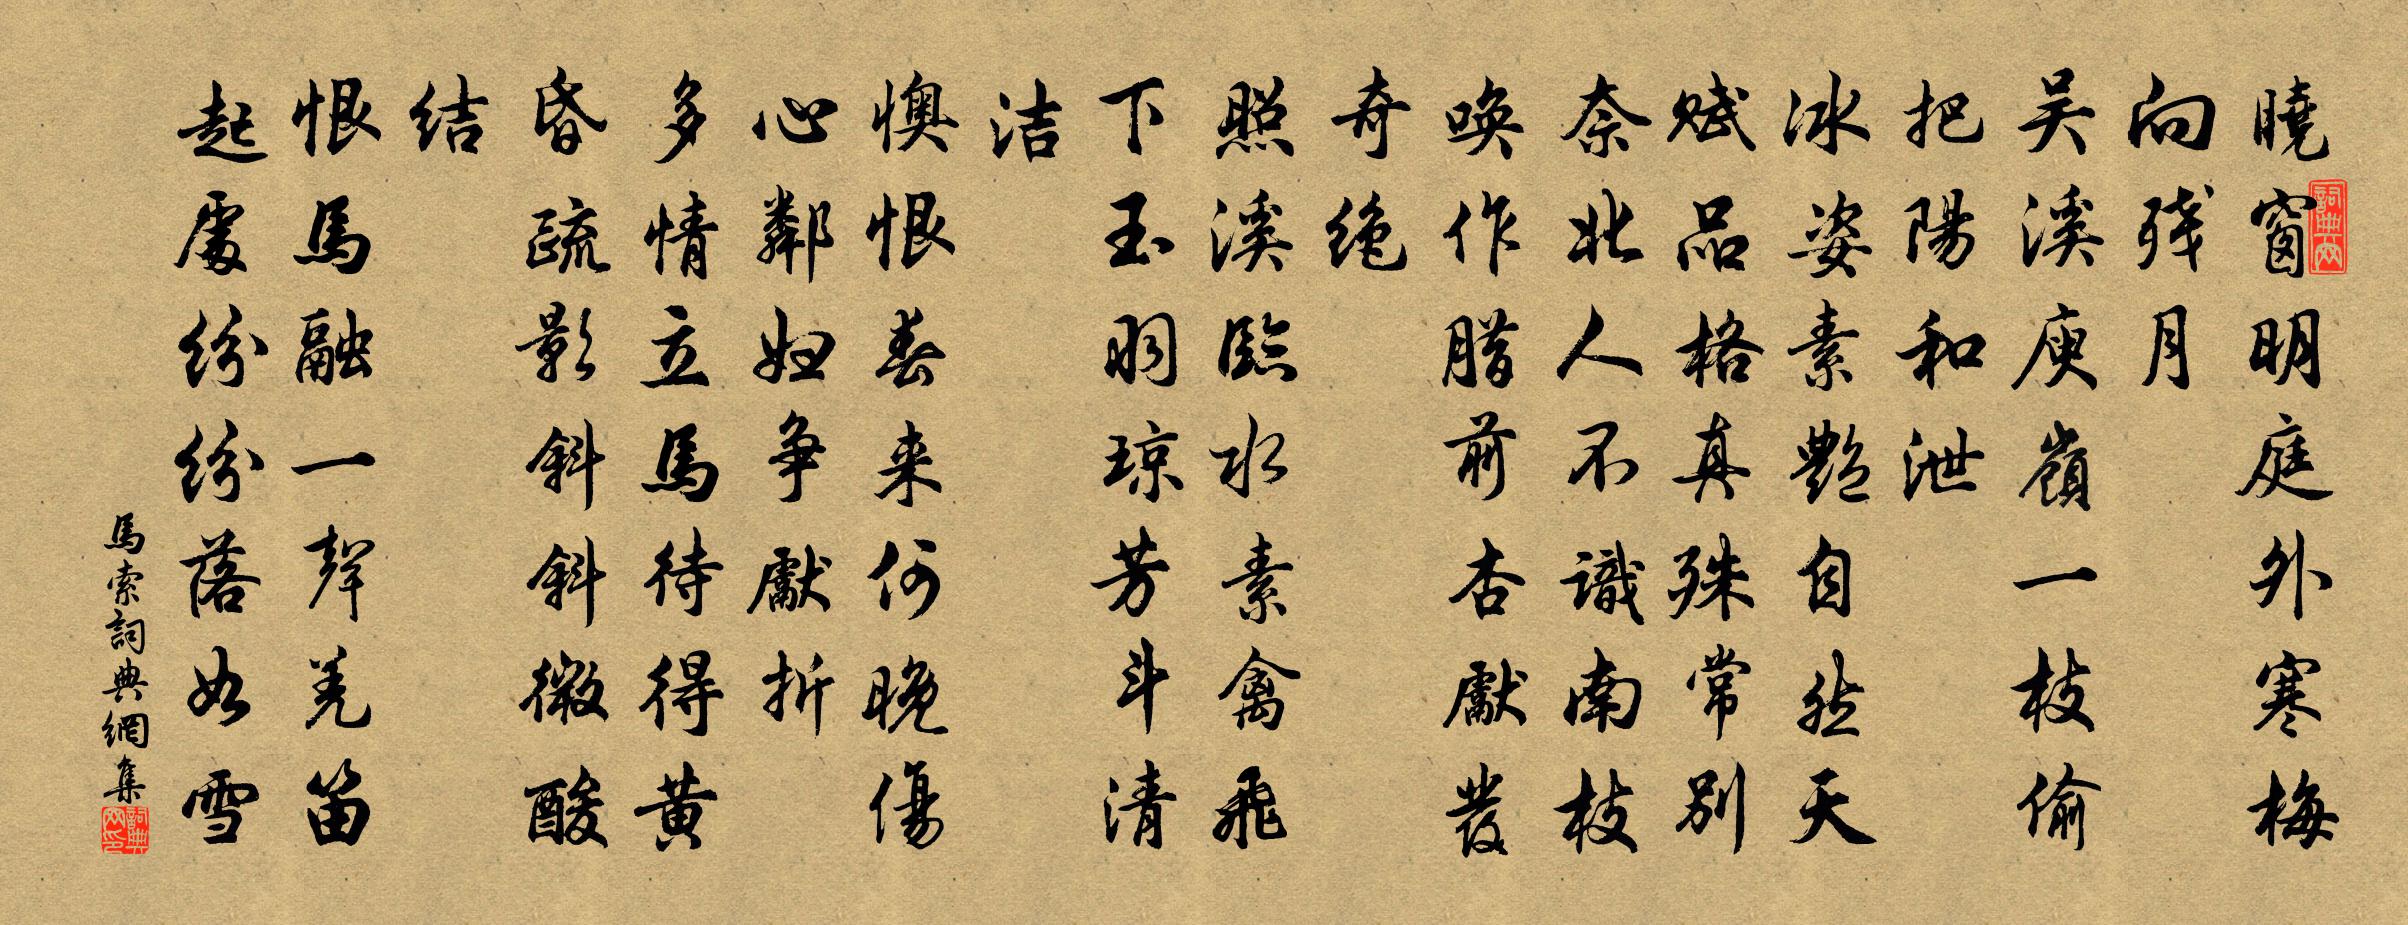 曉窗明庭外寒梅
向残月
吴溪庾嶺一枝偷
把陽和泄
冰姿素艷自然天
赋品格真殊常别
奈北人不識南枝
唤作腊前杏獻發
奇绝
照溪臨水素禽飛
下玉羽琼芳斗清
洁
懊恨春来何晚傷
心鄰妇争獻折
多情立馬待得黄
昏疏影斜斜微酸
结
恨馬融一聲羌笛
起處纷纷落如雪
馬索詞典網集
詞典网
詞典网印